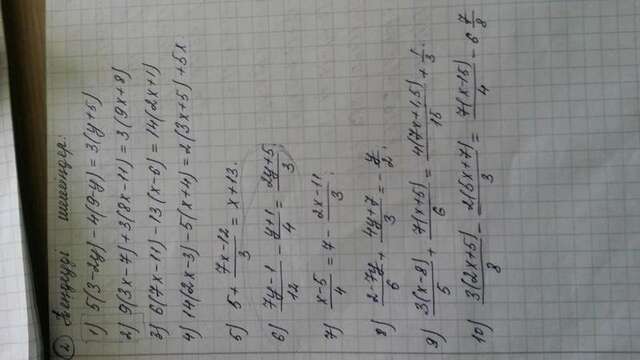 ② Теңдеуді шешіңдер:
1) 5(3-2y)-4(9-y)=3(y+5)
2) 9(3x-7)+3(8x-11)=3(9x+8)
3) 6(7x-11)-13(x-6)=14(2x+1)
4) 14(2x-3)-5(x+4)=2(3x+5)+5x
5) 5+\frac{7x-12}{3}=x+13.
6) \frac{7y-1}{12}-\frac{y+1}{4}=\frac{2y+5}{3}
7) \frac{x-5}{4}=7-\frac{2x-11}{3}.
8) \frac{2-7y}{6}+\frac{4y+7}{3}=-\frac{y}{2}.
9) \frac{3(x-8)}{5}+\frac{7(x+5)}{6}=\frac{4(7x+1,5)}{15}+\frac{1}{3}.
10) \frac{3(2x+5)}{8}-\frac{2(6x+7)}{3}=\frac{7(x-1,5)}{4}-6\frac{7}{8}